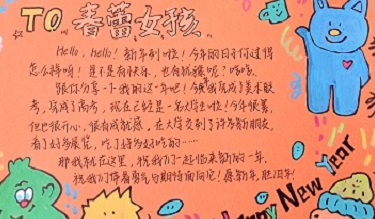 TO 春蕾女孩
Hello, hello! 新年到啦! 今年的日子过得
怎么样呀! 是不是有快乐, 也有犹豫呢? 哈哈,
跟你分享一下我的这一年吧! 今年我完成了美术联
考, 完成了高考, 现在已经是一名大学生啦! 今年很累
但也很开心, 很有成就感, 在大学交到了许多新朋友,
看了好多展览, 吃了好多好吃的……
那我就在这里, 祝我们一起迎来新的一年,
祝我们带着勇气与期待面向它! 愿新年, 胜旧年!
Happy New Year